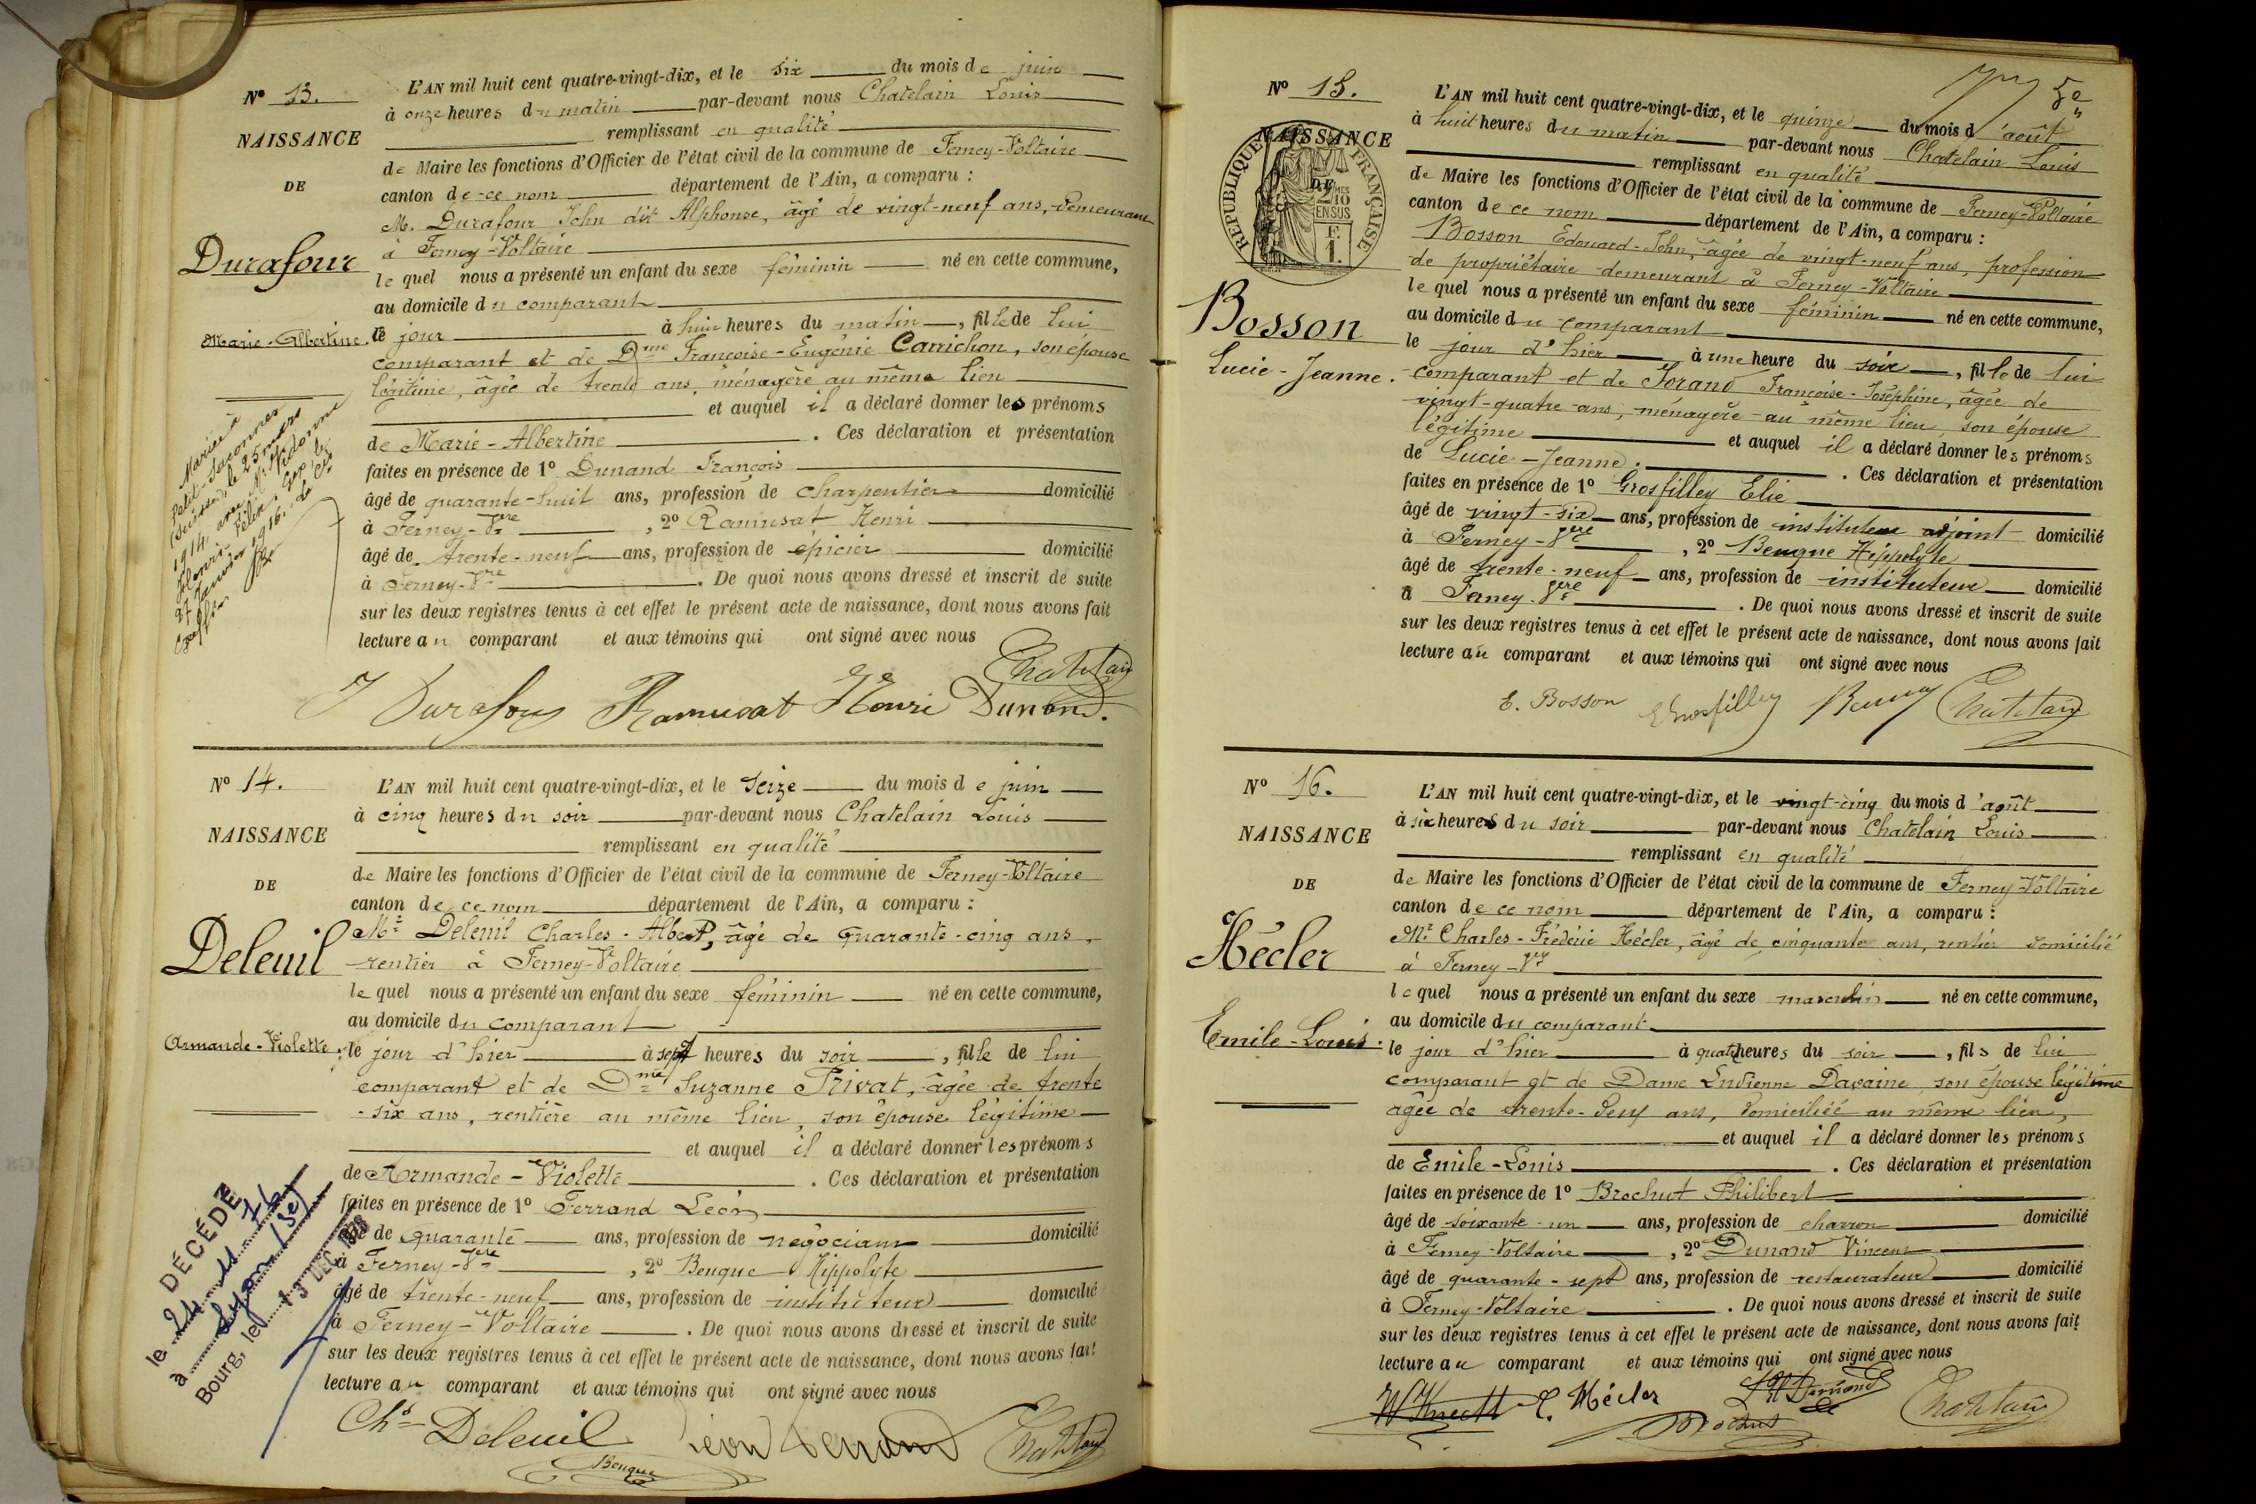 Nº 13.
NAISSANCE
DE
Durafour
Marie-Albertine.
L'AN mil huit cent quatre-vingt-dix, et le six du mois de juin
à onze heures du matin par-devant nous Chatelain Louis
remplissant en qualité
de Maire les fonctions d'Officier de l'état civil de la commune de Ferney-Voltaire
canton de ce nom département de l'Ain, a comparu :
M. Durafour John dit Alphonse, âgé de vingt-neuf ans, demeurant
à Ferney-Voltaire
lequel nous a présenté un enfant du sexe féminin né en cette commune,
au domicile du comparant
le jour à huit heures du matin, fille de lui
comparant et de Dme Françoise-Eugénie Carrichon, son épouse
légitime, âgée de trente ans, ménagère au même lieu
et auquel il a déclaré donner les prénoms
de Marie-Albertine. Ces déclaration et présentation
faites en présence de 1º Dunand François
âgé de quarante-huit ans, profession de charpentier domicilié
à Ferney-Vre, 2º Ramusat Henri
âgé de trente-neuf ans, profession de épicier domicilié
à Ferney-Vre. De quoi nous avons dressé et inscrit de suite
sur les deux registres tenus à cet effet le présent acte de naissance, dont nous avons fait
lecture au comparant et aux témoins qui ont signé avec nous
Mariée à
Petit-Saconnex
(Suisse), le 25 mars
1914 avec Mr Vidonne
Henri-Félix. Gex, le
27 Janvier 1916.
J Durafour Ramusat Henri Dunand.
Chatelain
Nº 14.
NAISSANCE
DE
Deleuil
Armande-Violette.
L'AN mil huit cent quatre-vingt-dix, et le seize du mois de juin
à cinq heures du soir par-devant nous Chatelain Louis
remplissant en qualité
de Maire les fonctions d'Officier de l'état civil de la commune de Ferney-Voltaire
canton de ce nom département de l'Ain, a comparu :
Mr Deleuil Charles-Albert, âgé de quarante-cinq ans,
rentier à Ferney-Voltaire
lequel nous a présenté un enfant du sexe féminin né en cette commune,
au domicile du comparant
le jour d'hier à sept heures du soir, fille de lui
comparant et de Dme Suzanne Privat, âgée de trente
-six ans, rentière au même lieu, son épouse légitime
et auquel il a déclaré donner les prénoms
de Armande-Violette. Ces déclaration et présentation
faites en présence de 1º Ferrand Léon
âgé de quarante ans, profession de négociant domicilié
à Ferney-Vre, 2º Benque Hippolyte
âgé de trente-neuf ans, profession de instituteur domicilié
à Ferney-Voltaire. De quoi nous avons dressé et inscrit de suite
sur les deux registres tenus à cet effet le présent acte de naissance, dont nous avons fait
lecture au comparant et aux témoins qui ont signé avec nous
DÉCÉDÉE
le 24
à Lyon
Bourg, le 13 DEC.
Chs Deleuil Léon Ferrand Chatelain
Benque
5e
Nº 15.
NAISSANCE
DE
RÉPUBLIQUE FRANÇAISE
2/10 MES
EN SUS
F.
1.
Bosson
Lucie-Jeanne.
L'AN mil huit cent quatre-vingt-dix, et le quinze du mois d'août
à huit heures du matin par-devant nous Chatelain Louis
remplissant en qualité
de Maire les fonctions d'Officier de l'état civil de la commune de Ferney-Voltaire
canton de ce nom département de l'Ain, a comparu :
Bosson Edouard-John, âgé de vingt-neuf ans, profession
de propriétaire demeurant à Ferney-Voltaire
lequel nous a présenté un enfant du sexe féminin né en cette commune,
au domicile du comparant
le jour d'hier à une heure du soir, fille de lui
comparant et de Françoise-Joséphine, âgée de
vingt-quatre ans, ménagère au même lieu, son épouse
légitime et auquel il a déclaré donner les prénoms
de Lucie-Jeanne. Ces déclaration et présentation
faites en présence de 1º Grosfilley Elie
âgé de vingt-six ans, profession de instituteur adjoint domicilié
à Ferney-Vre, 2º Benque Hippolyte
âgé de trente-neuf ans, profession de instituteur domicilié
à Ferney-Vre. De quoi nous avons dressé et inscrit de suite
sur les deux registres tenus à cet effet le présent acte de naissance, dont nous avons fait
lecture au comparant et aux témoins qui ont signé avec nous
E. Bosson Grosfilley Benque Chatelain
Nº 16.
NAISSANCE
DE
Hécler
Emile-Louis.
L'AN mil huit cent quatre-vingt-dix, et le vingt-cinq du mois d'août
à six heures du soir par-devant nous Chatelain Louis
remplissant en qualité
de Maire les fonctions d'Officier de l'état civil de la commune de Ferney-Voltaire
canton de ce nom département de l'Ain, a comparu :
Mr Charles-Frédéric Hécler, âgé de cinquante ans, rentier domicilié
à Ferney-Vre
lequel nous a présenté un enfant du sexe masculin né en cette commune,
au domicile du comparant
le jour d'hier à quatre heures du soir, fils de lui
comparant et de Dame Davaine son épouse légitime
âgée de trente-deux ans, domiciliée au même lieu,
et auquel il a déclaré donner les prénoms
de Emile-Louis. Ces déclaration et présentation
faites en présence de 1º Brochut Philibert
âgé de soixante-un ans, profession de charron domicilié
à Ferney-Voltaire, 2º Dunand Vincent
âgé de quarante-sept ans, profession de restaurateur domicilié
à Ferney-Voltaire. De quoi nous avons dressé et inscrit de suite
sur les deux registres tenus à cet effet le présent acte de naissance, dont nous avons fait
lecture au comparant et aux témoins qui ont signé avec nous
C. Hécler Dunand Chatelain
Brochut